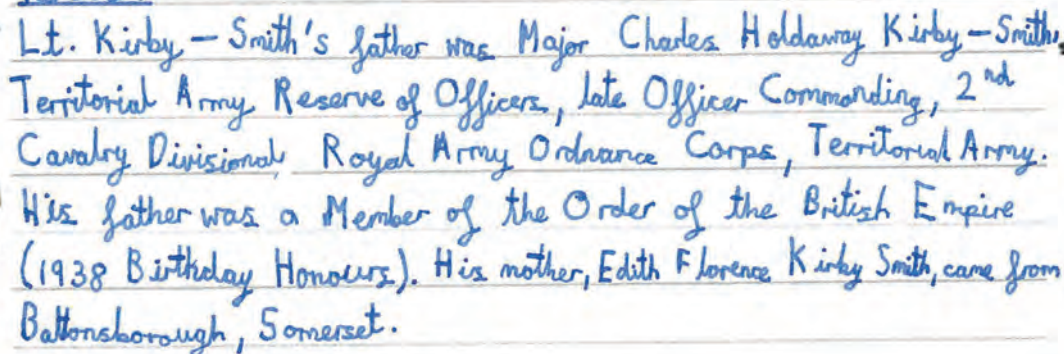 Lt. Kirby – Smith's father was Major Charles Holdaway Kirby – Smith,
Territorial Army Reserve of Officers, late Officer Commanding, 2nd
Cavalry Divisional Royal Army Ordnance Corps, Territorial Army.
His father was a Member of the Order of the British Empire
(1938 Birthday Honours). His mother, Edith Florence Kirby Smith, came from
Baltonsborough, Somerset.